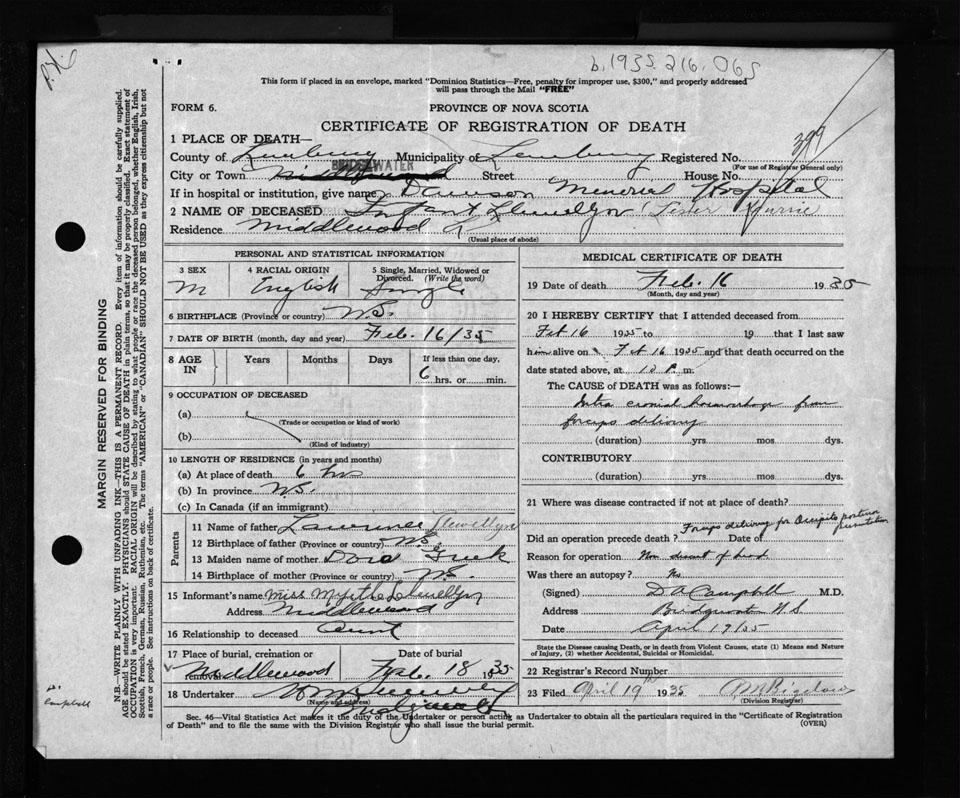 b. 1935. 216. 065
This form if placed in an envelope, marked "Dominion Statistics—Free, penalty for improper use, $300," and properly addressed
will pass through the Mail "FREE"
FORM 6.
PROVINCE OF NOVA SCOTIA
CERTIFICATE OF REGISTRATION OF DEATH
399
1 PLACE OF DEATH—
County of Lunenburg Municipality of Lunenburg Registered No.
(For use of Registrar General only)
BRIDGEWATER
City or Town Middlewood Street House No.
If in hospital or institution, give name Dawson Memorial Hospital
2 NAME OF DECEASED Infant Llewellyn Lester
Residence Middlewood
(Usual place of abode)
PERSONAL AND STATISTICAL INFORMATION
3 SEX 4 RACIAL ORIGIN 5 Single, Married, Widowed or Divorced. (Write the word)
M English Single
6 BIRTHPLACE (Province or country) N.S.
7 DATE OF BIRTH (month, day and year) Feb. 16/35
8 AGE IN Years Months Days If less than one day,
6 hrs. or min.
9 OCCUPATION OF DECEASED
(a)
(Trade or occupation or kind of work)
(b)
(Kind of industry)
10 LENGTH OF RESIDENCE (in years and months)
(a) At place of death 6 hrs
(b) In province N.S.
(c) In Canada (if an immigrant)
Parents
11 Name of father Lawrence Llewellyn
12 Birthplace of father (Province or country) N.S.
13 Maiden name of mother Dora
14 Birthplace of mother (Province or country) N.S.
15 Informant's name Miss Myrtle Llewellyn
Address Middlewood
16 Relationship to deceased Aunt
17 Place of burial, cremation or removal Date of burial
Middlewood Feb. 18 1935
18 Undertaker
(Name and address)
MEDICAL CERTIFICATE OF DEATH
19 Date of death Feb. 16 1935
(Month, day and year)
20 I HEREBY CERTIFY that I attended deceased from
Feb 16 1935 to 19 that I last saw
him alive on Feb 16 1935 and that death occurred on the
date stated above, at 12 P. m.
The CAUSE of DEATH was as follows:—
Intra cranial haemorrhage from
forceps delivery
(duration) yrs. mos. dys.
CONTRIBUTORY
(duration) yrs. mos. dys.
21 Where was disease contracted if not at place of death?
Forceps delivery for Occipito posterior
presentation
Did an operation precede death? Date of
Reason for operation Non descent of head
Was there an autopsy? No
(Signed) D A Campbell M.D.
Address Bridgewater N S
Date April 19/35
State the Disease causing Death, or in death from Violent Causes, state (1) Means and Nature
of Injury, (2) whether Accidental, Suicidal or Homicidal.
22 Registrar's Record Number
23 Filed April 19th 1935
(Division Registrar)
Sec. 46—Vital Statistics Act makes it the duty of the Undertaker or person acting as Undertaker to obtain all the particulars required in the "Certificate of Registration
of Death" and to file the same with the Division Registrar who shall issue the burial permit.
(OVER)
MARGIN RESERVED FOR BINDING
N.B.—WRITE PLAINLY WITH UNFADING INK—THIS IS A PERMANENT RECORD. Every item of information should be carefully supplied.
AGE should be stated EXACTLY. PHYSICIANS should STATE CAUSE OF DEATH in plain terms, so that it may be properly classified. Exact statement of
OCCUPATION is very important. RACIAL ORIGIN will be described by stating to what people or race the deceased person belonged, whether English, Irish,
Scottish, French, German, Russian, Ruthenian, etc. The terms "AMERICAN" or "CANADIAN" SHOULD NOT BE USED as they express citizenship but not
a race or people. See instructions on back of certificate.
Dr. Campbell